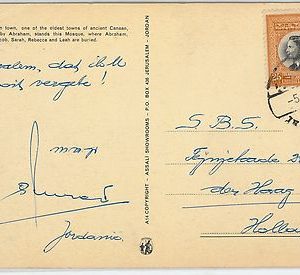 n town, one of the oldest towns of ancient Canaan,
by Abraham, stands this Mosque, where Abraham,
cob, Sarah, Rebecca and Leah are buried.
alem, dat ik
ooit vergete!
Jordanie
All COPYRIGHT - ASSALI SHOWROOMS - P.O. BOX 436 JERUSALEM - JORDAN
S.B.S.
den Haag
Holla